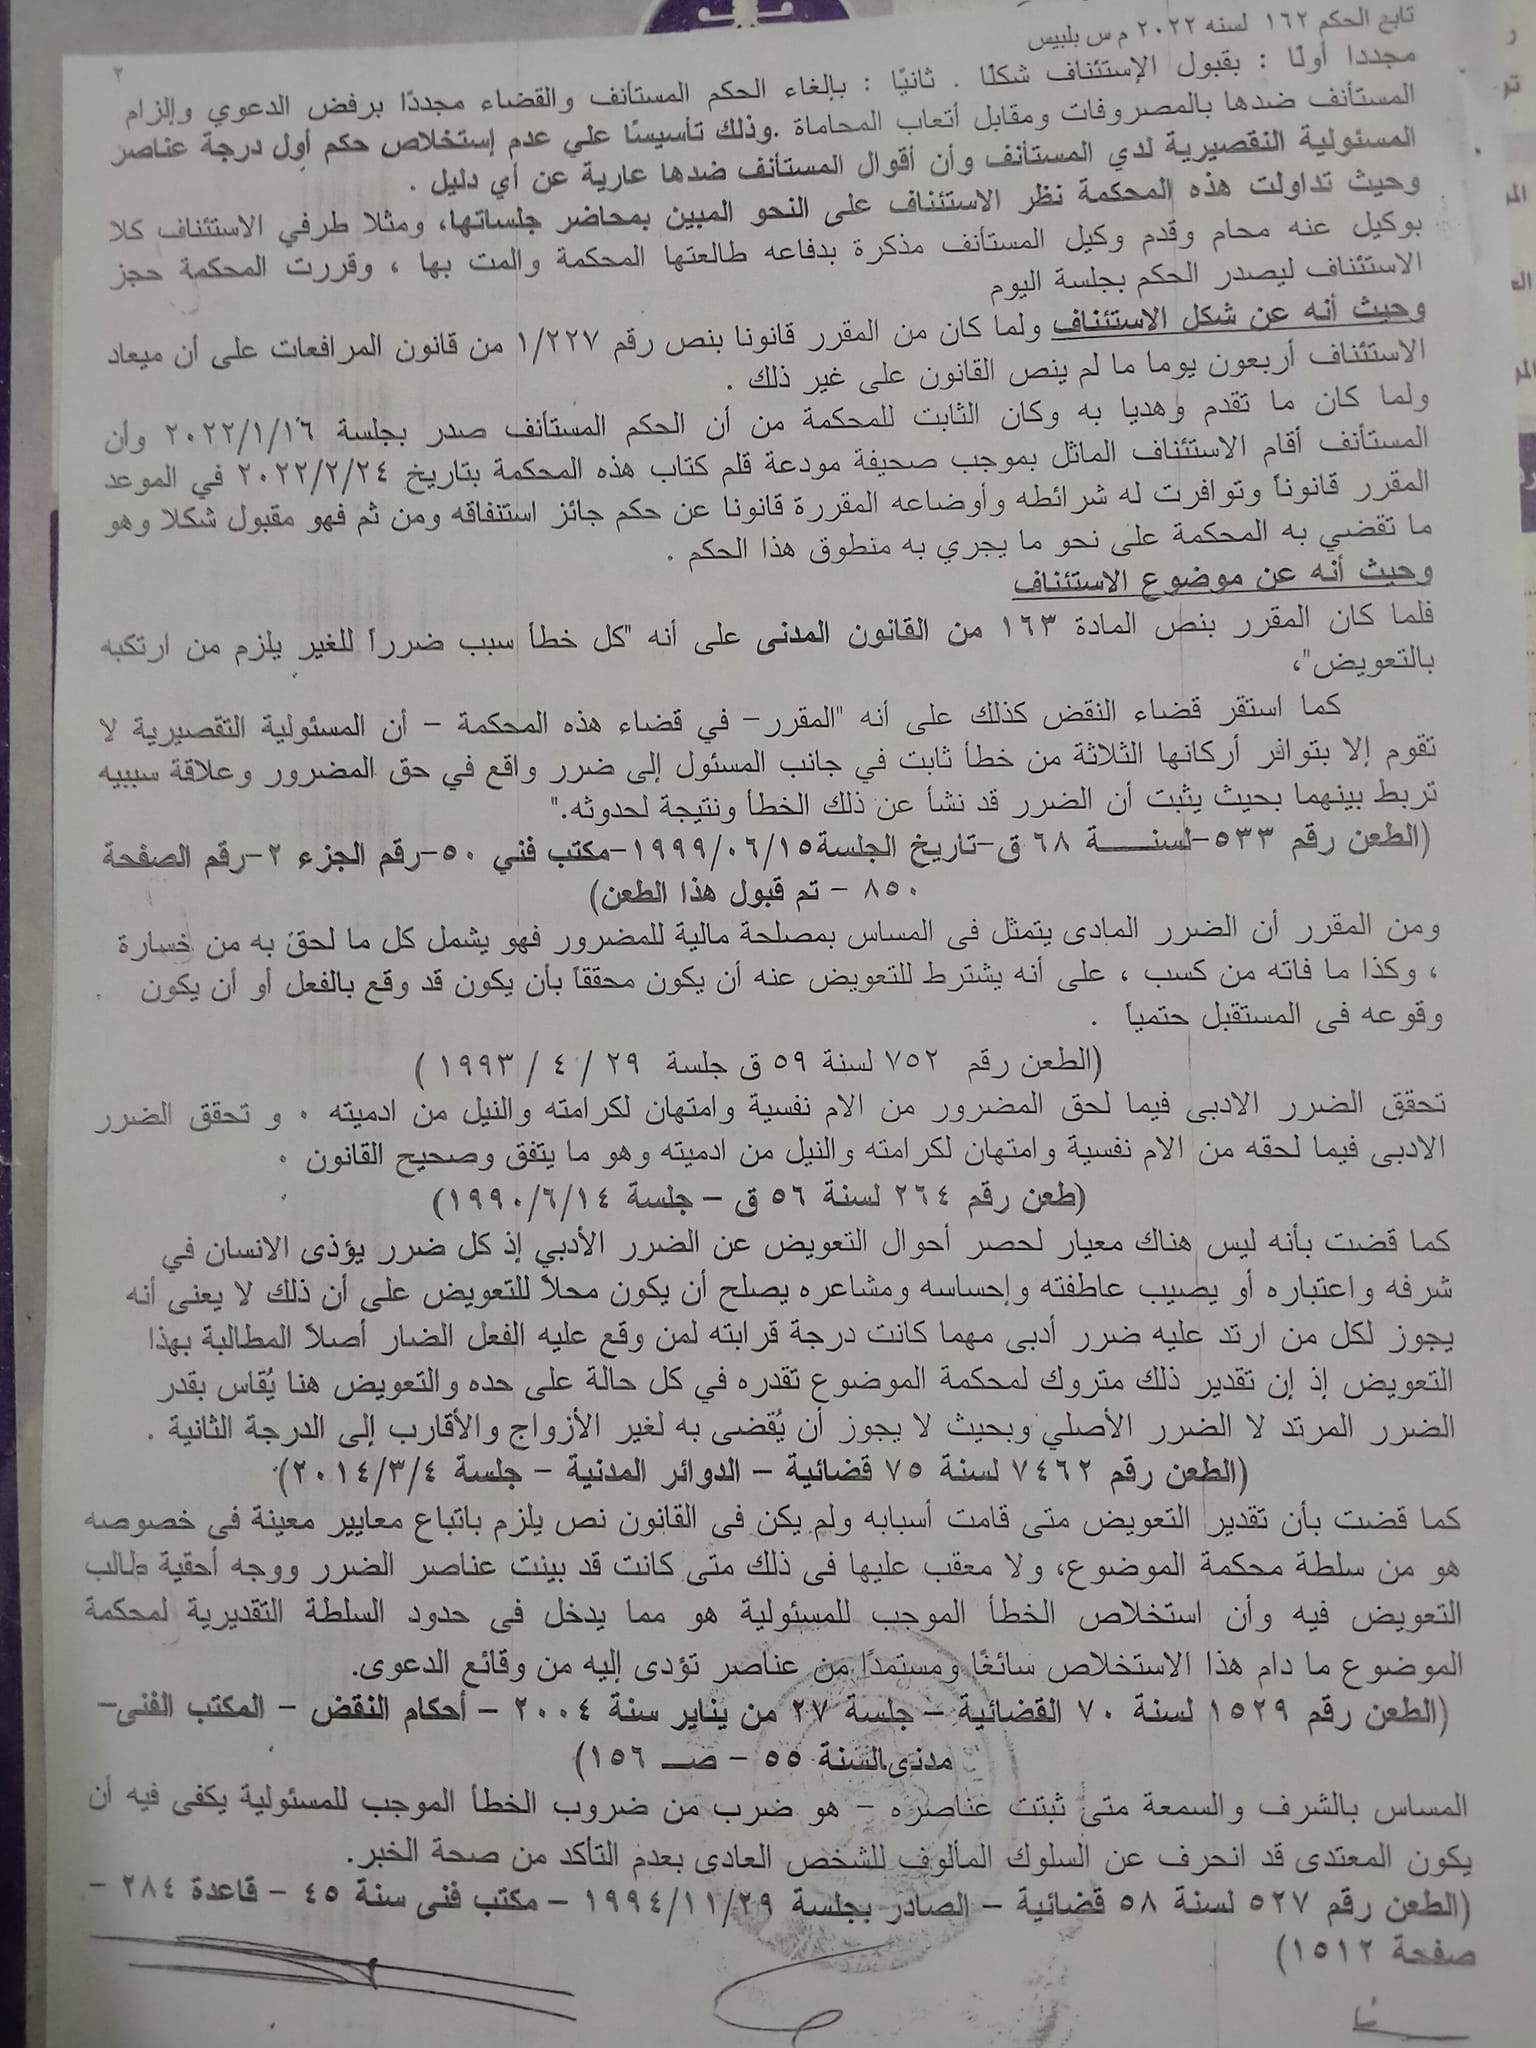 تابع الحكم ١٦٢ لسنه ٢٠٢٢ م س بلبيس
٢
مجددا أولًا : بقبول الإستئناف شكلًا . ثانيًا : بإلغاء الحكم المستأنف والقضاء مجددًا برفض الدعوي وإلزام
المستأنف ضدها بالمصروفات ومقابل أتعاب المحاماة .وذلك تأسيسًا علي عدم إستخلاص حكم أول درجة عناصر
المسئولية التقصيرية لدي المستأنف وأن أقوال المستأنف ضدها عارية عن أي دليل .
وحيث تداولت هذه المحكمة نظر الاستئناف على النحو المبين بمحاضر جلساتها، ومثلا طرفي الاستئناف كلا
بوكيل عنه محام وقدم وكيل المستأنف مذكرة بدفاعه طالعتها المحكمة والمت بها ، وقررت المحكمة حجز
الاستئناف ليصدر الحكم بجلسة اليوم
وحيث أنه عن شكل الاستئناف ولما كان من المقرر قانونا بنص رقم ١/٢٢٧ من قانون المرافعات على أن ميعاد
الاستئناف أربعون يوما ما لم ينص القانون على غير ذلك .
ولما كان ما تقدم وهديا به وكان الثابت للمحكمة من أن الحكم المستأنف صدر بجلسة ٢٠٢٢/١/١٦ وأن
المستأنف أقام الاستئناف الماثل بموجب صحيفة مودعة قلم كتاب هذه المحكمة بتاريخ ٢٠٢٢/٢/٢٤ في الموعد
المقرر قانوناً وتوافرت له شرائطه وأوضاعه المقررة قانونا عن حكم جائز استنفاقه ومن ثم فهو مقبول شكلا وهو
ما تقضي به المحكمة على نحو ما يجري به منطوق هذا الحكم .
وحيث أنه عن موضوع الاستئناف
فلما كان المقرر بنص المادة ١٦٣ من القانون المدنى على أنه "كل خطأ سبب ضرراً للغير يلزم من ارتكبه
بالتعويض"،
كما استقر قضاء النقض كذلك على أنه "المقرر– في قضاء هذه المحكمة – أن المسئولية التقصيرية لا
تقوم إلا بتوافر أركانها الثلاثة من خطأ ثابت في جانب المسئول إلى ضرر واقع في حق المضرور وعلاقة سببيه
تربط بينهما بحيث يثبت أن الضرر قد نشأ عن ذلك الخطأ ونتيجة لحدوثه."
(الطعن رقم ٥٣٣–لسنــــة ٦٨ ق–تاريخ الجلسة١٩٩٩/٠٦/١٥–مكتب فني ٥٠–رقم الجزء ٢–رقم الصفحة
٨٥٠ – تم قبول هذا الطعن)
ومن المقرر أن الضرر المادى يتمثل فى المساس بمصلحة مالية للمضرور فهو يشمل كل ما لحق به من خسارة
، وكذا ما فاته من كسب ، على أنه يشترط للتعويض عنه أن يكون محققاً بأن يكون قد وقع بالفعل أو أن يكون
وقوعه فى المستقبل حتمياً .
(الطعن رقم ٧٥٢ لسنة ٥٩ ق جلسة ٢٩ / ٤ / ١٩٩٣ )
تحقق الضرر الادبى فيما لحق المضرور من الام نفسية وامتهان لكرامته والنيل من ادميته . و تحقق الضرر
الادبى فيما لحقه من الام نفسية وامتهان لكرامته والنيل من ادميته وهو ما يتفق وصحيح القانون .
(طعن رقم ٢٦٤ لسنة ٥٦ ق – جلسة ١٩٩٠/٦/١٤)
كما قضت بأنه ليس هناك معيار لحصر أحوال التعويض عن الضرر الأدبي إذ كل ضرر يؤذى الانسان في
شرفه واعتباره أو يصيب عاطفته وإحساسه ومشاعره يصلح أن يكون محلاً للتعويض على أن ذلك لا يعنى أنه
يجوز لكل من ارتد عليه ضرر أدبى مهما كانت درجة قرابته لمن وقع عليه الفعل الضار أصلاً المطالبة بهذا
التعويض إذ إن تقدير ذلك متروك لمحكمة الموضوع تقدره في كل حالة على حده والتعويض هنا يُقاس بقدر
الضرر المرتد لا الضرر الأصلي وبحيث لا يجوز أن يُقضى به لغير الأزواج والأقارب إلى الدرجة الثانية .
(الطعن رقم ٧٤٦٢ لسنة ٧٥ قضائية – الدوائر المدنية – جلسة ٢٠١٤/٣/٤)
كما قضت بأن تقدير التعويض متى قامت أسبابه ولم يكن فى القانون نص يلزم باتباع معايير معينة فى خصوصه
هو من سلطة محكمة الموضوع، ولا معقب عليها فى ذلك متى كانت قد بينت عناصر الضرر ووجه أحقية طالب
التعويض فيه وأن استخلاص الخطأ الموجب للمسئولية هو مما يدخل فى حدود السلطة التقديرية لمحكمة
الموضوع ما دام هذا الاستخلاص سائغًا ومستمدًا من عناصر تؤدى إليه من وقائع الدعوى.
(الطعن رقم ١٥٢٩ لسنة ٧٠ القضائية – جلسة ٢٧ من يناير سنة ٢٠٠٤ – أحكام النقض – المكتب الفنى–
مدنى السنة ٥٥ – صــ ١٥٦)
المساس بالشرف والسمعة متى ثبتت عناصره – هو ضرب من ضروب الخطأ الموجب للمسئولية يكفى فيه أن
يكون المعتدى قد انحرف عن السلوك المألوف للشخص العادى بعدم التأكد من صحة الخبر.
(الطعن رقم ٥٢٧ لسنة ٥٨ قضائية – الصادر بجلسة ١٩٩٤/١١/٢٩ – مكتب فنى سنة ٤٥ – قاعدة ٢٨٤ –
صفحة ١٥١٢)